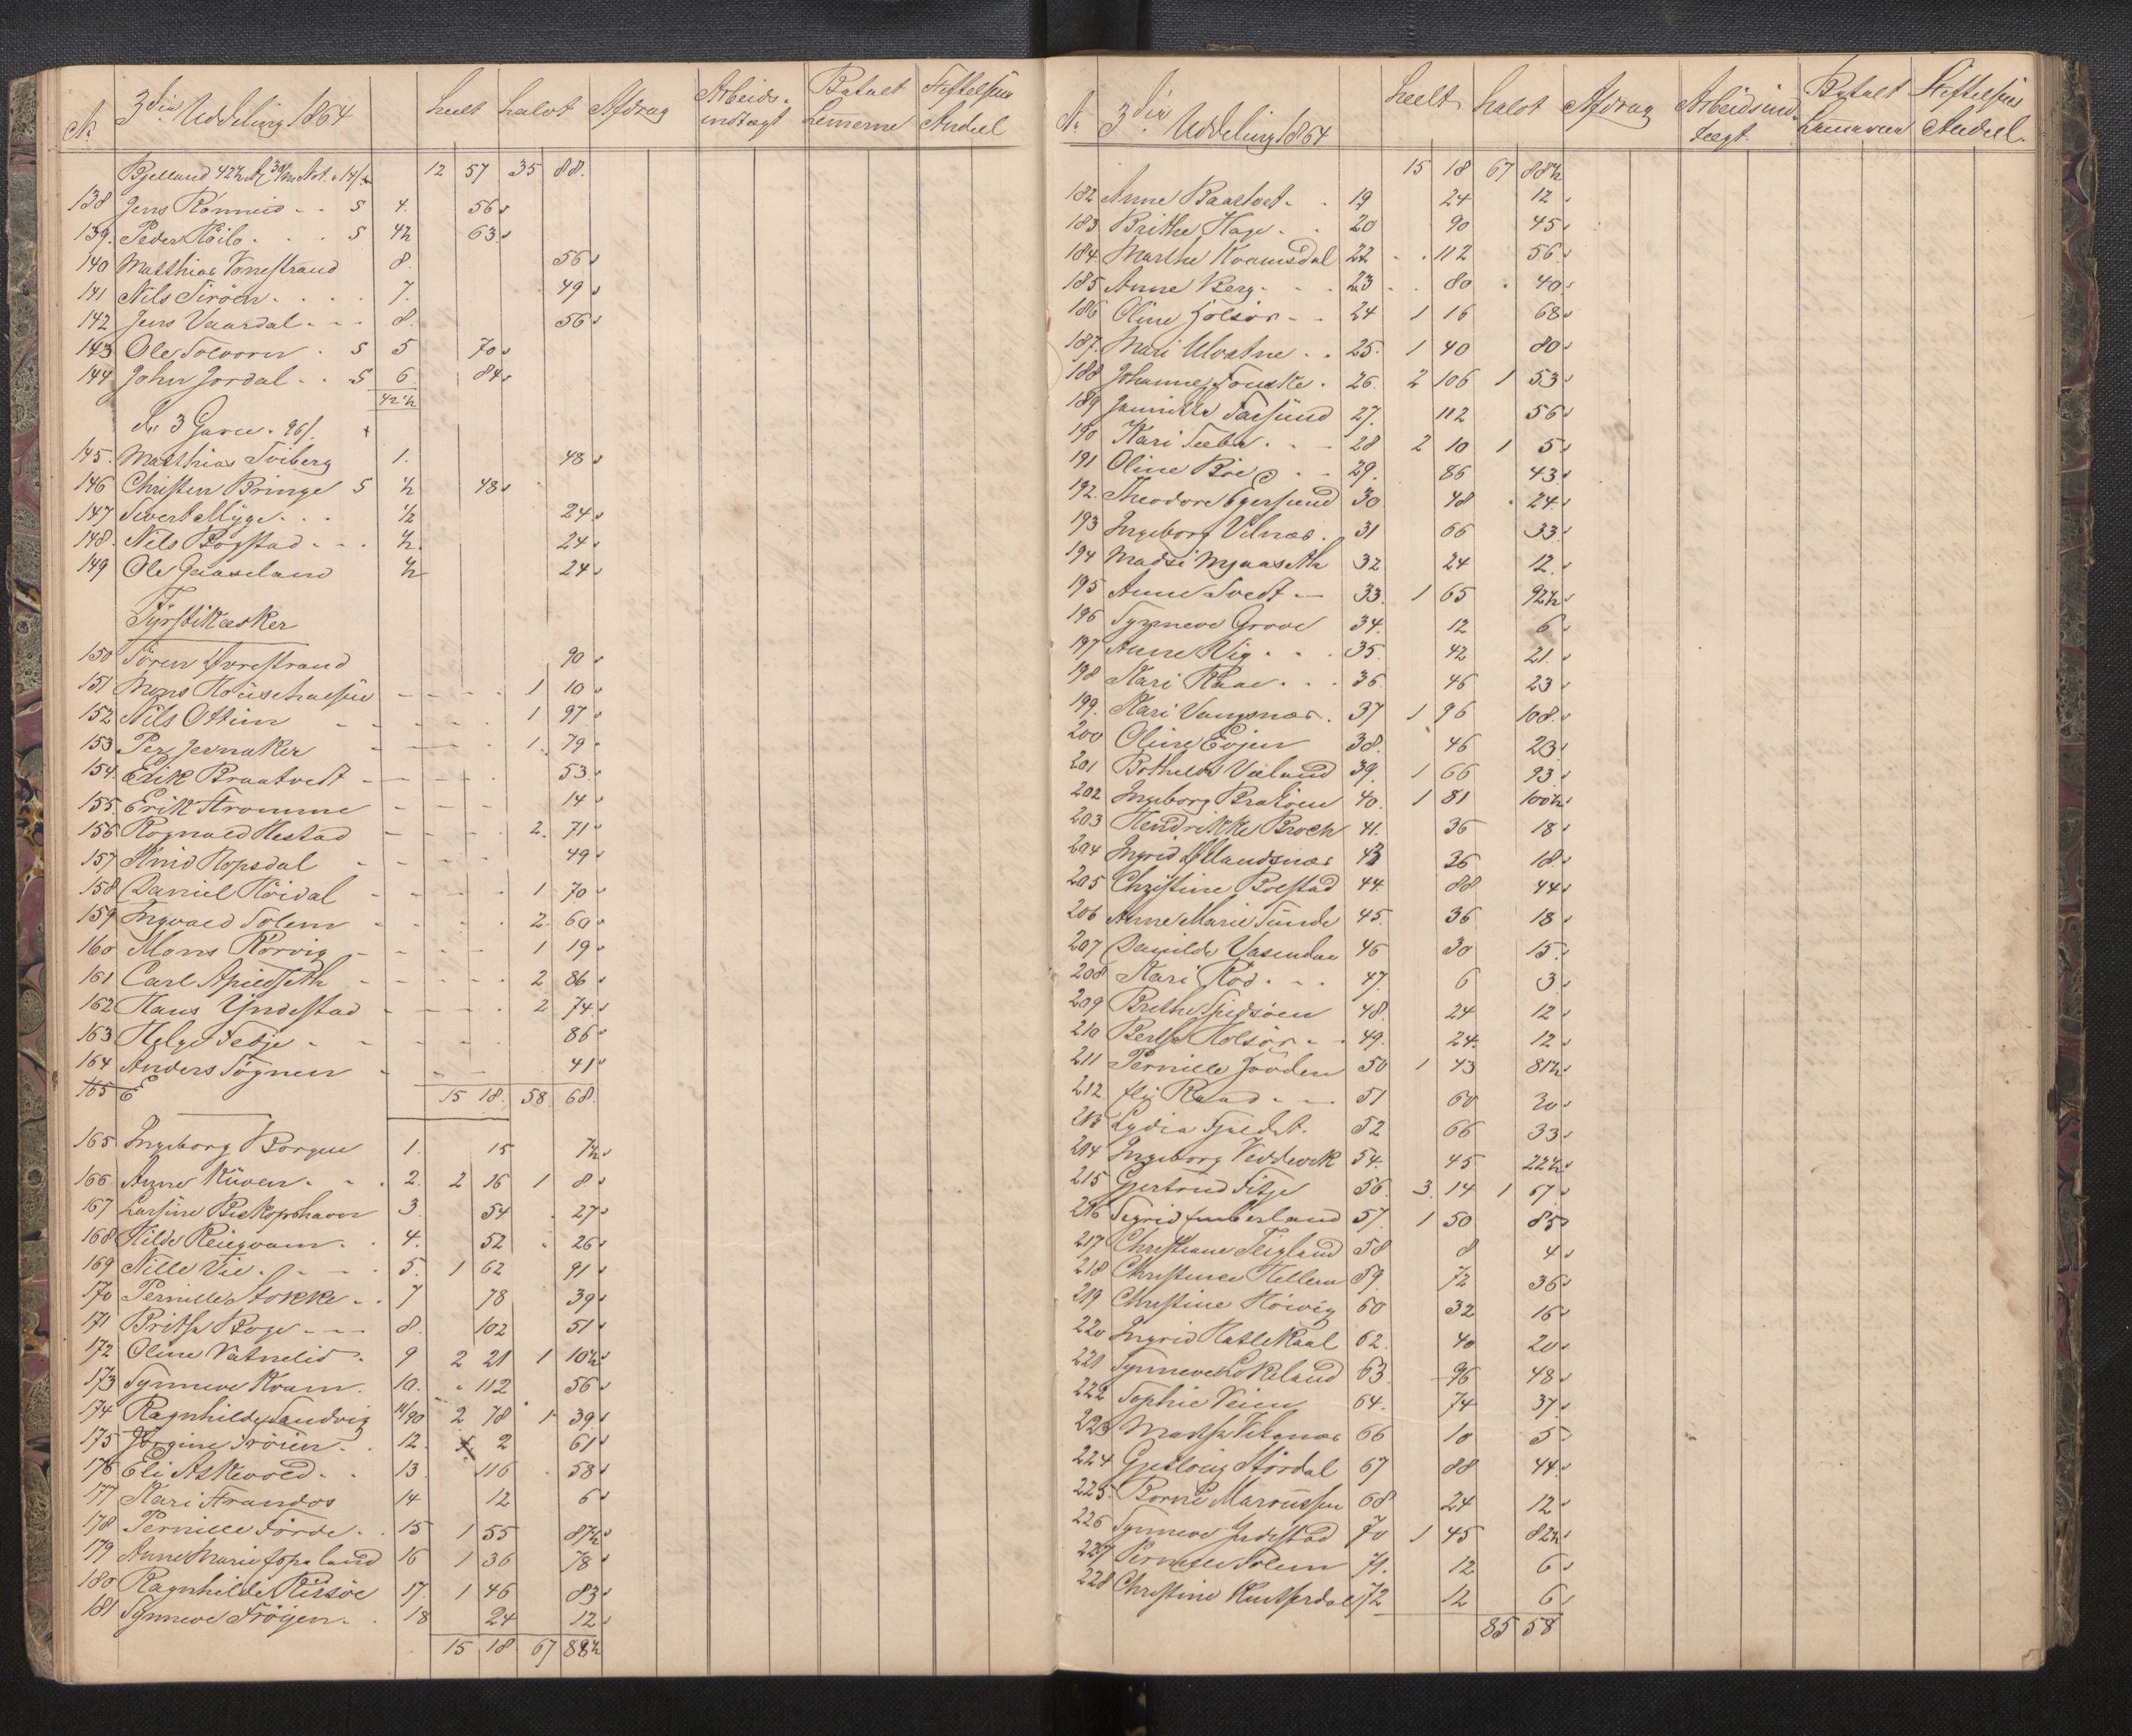 N. 3die Uddeling 1864 heelt halvt Afdrag Arbeids- indtægt Betalt Lemerne Stiftelsens Andeel
Bjelland 42½ 12 57 35 88.
138 Jens Rønneid - - S 4. 56
139. Peder Höilo. . . S 4½ 63
140 Matthias Tonestrand 8. 56
141 Nils Tiröen. . . . 7. 49
142 Jens Vaardal - - - 8. 56
143 Ole Solvorn . S 5 70
144 John Jordal - . S 6 84
42½
N. 3 Garn. 96
145. Matthias Sviberg 1. 48
146 Christen Bringe S ½ 48
147 Sivert Myge. . . ½ 24
148. Nils Bogstad - - . ½ 24
149 Ole Gaaseland ½ 24
Fyrstikæsker
150 Sören Øvrestrand 90
151 Mons 1 10
152 Nils Ottim 1 97
153 Per Jevnaker 1. 79
154. Erik Braatvedt 53
155. Erik Stromme 14
156 Rognald Hestad 2. 71
157 Knud Hopsdal 49
158 Daniel Höidal 1 70
159 Ingvald Solem 2. 60
160 Mons Rörvig 1 19
161 Carl Apieldseth 2 86
162 Hans Yndestad 2 74
163 Helge Tebje 86
164 Anders Sögnen 41
165 E 15 18. 58 68.
165 Ingeborg Borgen 1. 15 7½
166 Anne Küven. - . 2. 2 16 1 8
167 Larsine Biskopshavn 3 54 27
168 Hilde Reieqvam. . 4. 52 26
169 Nille Vie. . - - . 5. 1 62 91
170 Pernille Stokke. . 7 78 39
171 Britha Boge - - - 8. 102 51
172 Oline Vatnelid . 9 2 21 1 10½
173 Synneve Kvam. 10. 112 56
174 Ragnhilde Sandvig 11/90 2 78 1 39
175 Jörgine Tröien. . 12. 2 61
176 Eli Askevold. . 13 116 58
177 Kari Strandos 14 12 6
178 Pernille Förde. . 15 1 55 87½
179 Anne Marie Opsaland 16 1 36 78
180 Ragnhilde Rissöe 17. 1 46 83
181 Synneve Fröyen. . 18 24 12
15 18 67 88½
N. 3die Uddeling 1864 heelt halvt Afdrag Arbeidsind- tægt. Betalt Lemmerne Stiftelsens Andeel.
15 18 67 88½
182 Anne Baartvet. . 19 24 12
183 Brithe Hage. . 20 90 45
184 Marthe Kvamsdal 22 112 56
185 Anne Berg. - - . 23 80 40
186 Oline Holsör - - 24 1 16 68
187. Mari Ulvatne . . 25. 1 40 80
188 Johanne Fonske . 26. 2 106 1 53
189 Jannikke Farsund 27. 112 56
190 Kari Sæbø . - - 28 2 10 1 5
191 Oline Böe - - 29. 86 43
192. Theodore Egersund 30 48 24
193 Ingeborg Vilnæs . 31 66 33
194 Madsi Myaaseth 32 24 12
195 Anne Tvedt - 33. 1 65 92½
196 Synneve Grove 34. 12 6
197 Anne Vig . . . 35. 42 21
198 Kari Raae . . . 36. 46 23
199. Kari Vangsnæs. 37 1 96 108
200 Oline Evjen 38. 46 23
201 Bothilde Veland 39. 1 66 93
202 Ingeborg 40. 1 81 100½
203 Hendrikke Broch 41. 36 18
204 Ingrid Ollandsnæs 43 36 18
205 Christine Bolstad 44. 88 44
206 Anne Marie Sunde 45. 36 18
207 Danilde Vasendne 46 30 15
208 Kari Röd . . . 47. 6 3
209 Brithe 48. 24 12
210 Bertha Holsör - . 49. 24. 12
211 Pernille 50 1 43 81½
212 Eli Raad - - - 51 60 30
213 Lydia 52 66 33
214 Ingeborg Vedvik 54. 45 22½
215 Gjertrud Fitje 56. 3. 14 1 67
216 Sigrid 57. 1 50 85
217 Christiane Teigland 58 8 4
218 Christence Hellem 59. 72 36
219 Christine Höivig 60 32 16
220 Ingrid Hatlekaal 62. 40 20
221 Synneve Lokeland 63. 96 48
222 Sophie Veien 64. 74 37
223 Martha Vilsnæs 66 10 5
224 Gjeslöug Stördal 67 88 44
225. Borni 68 24 12
226 Synneve Indestad 70 1 45 82½
227 Pernille Solem 71. 12 6
228 Christine 72 12 6
85 58